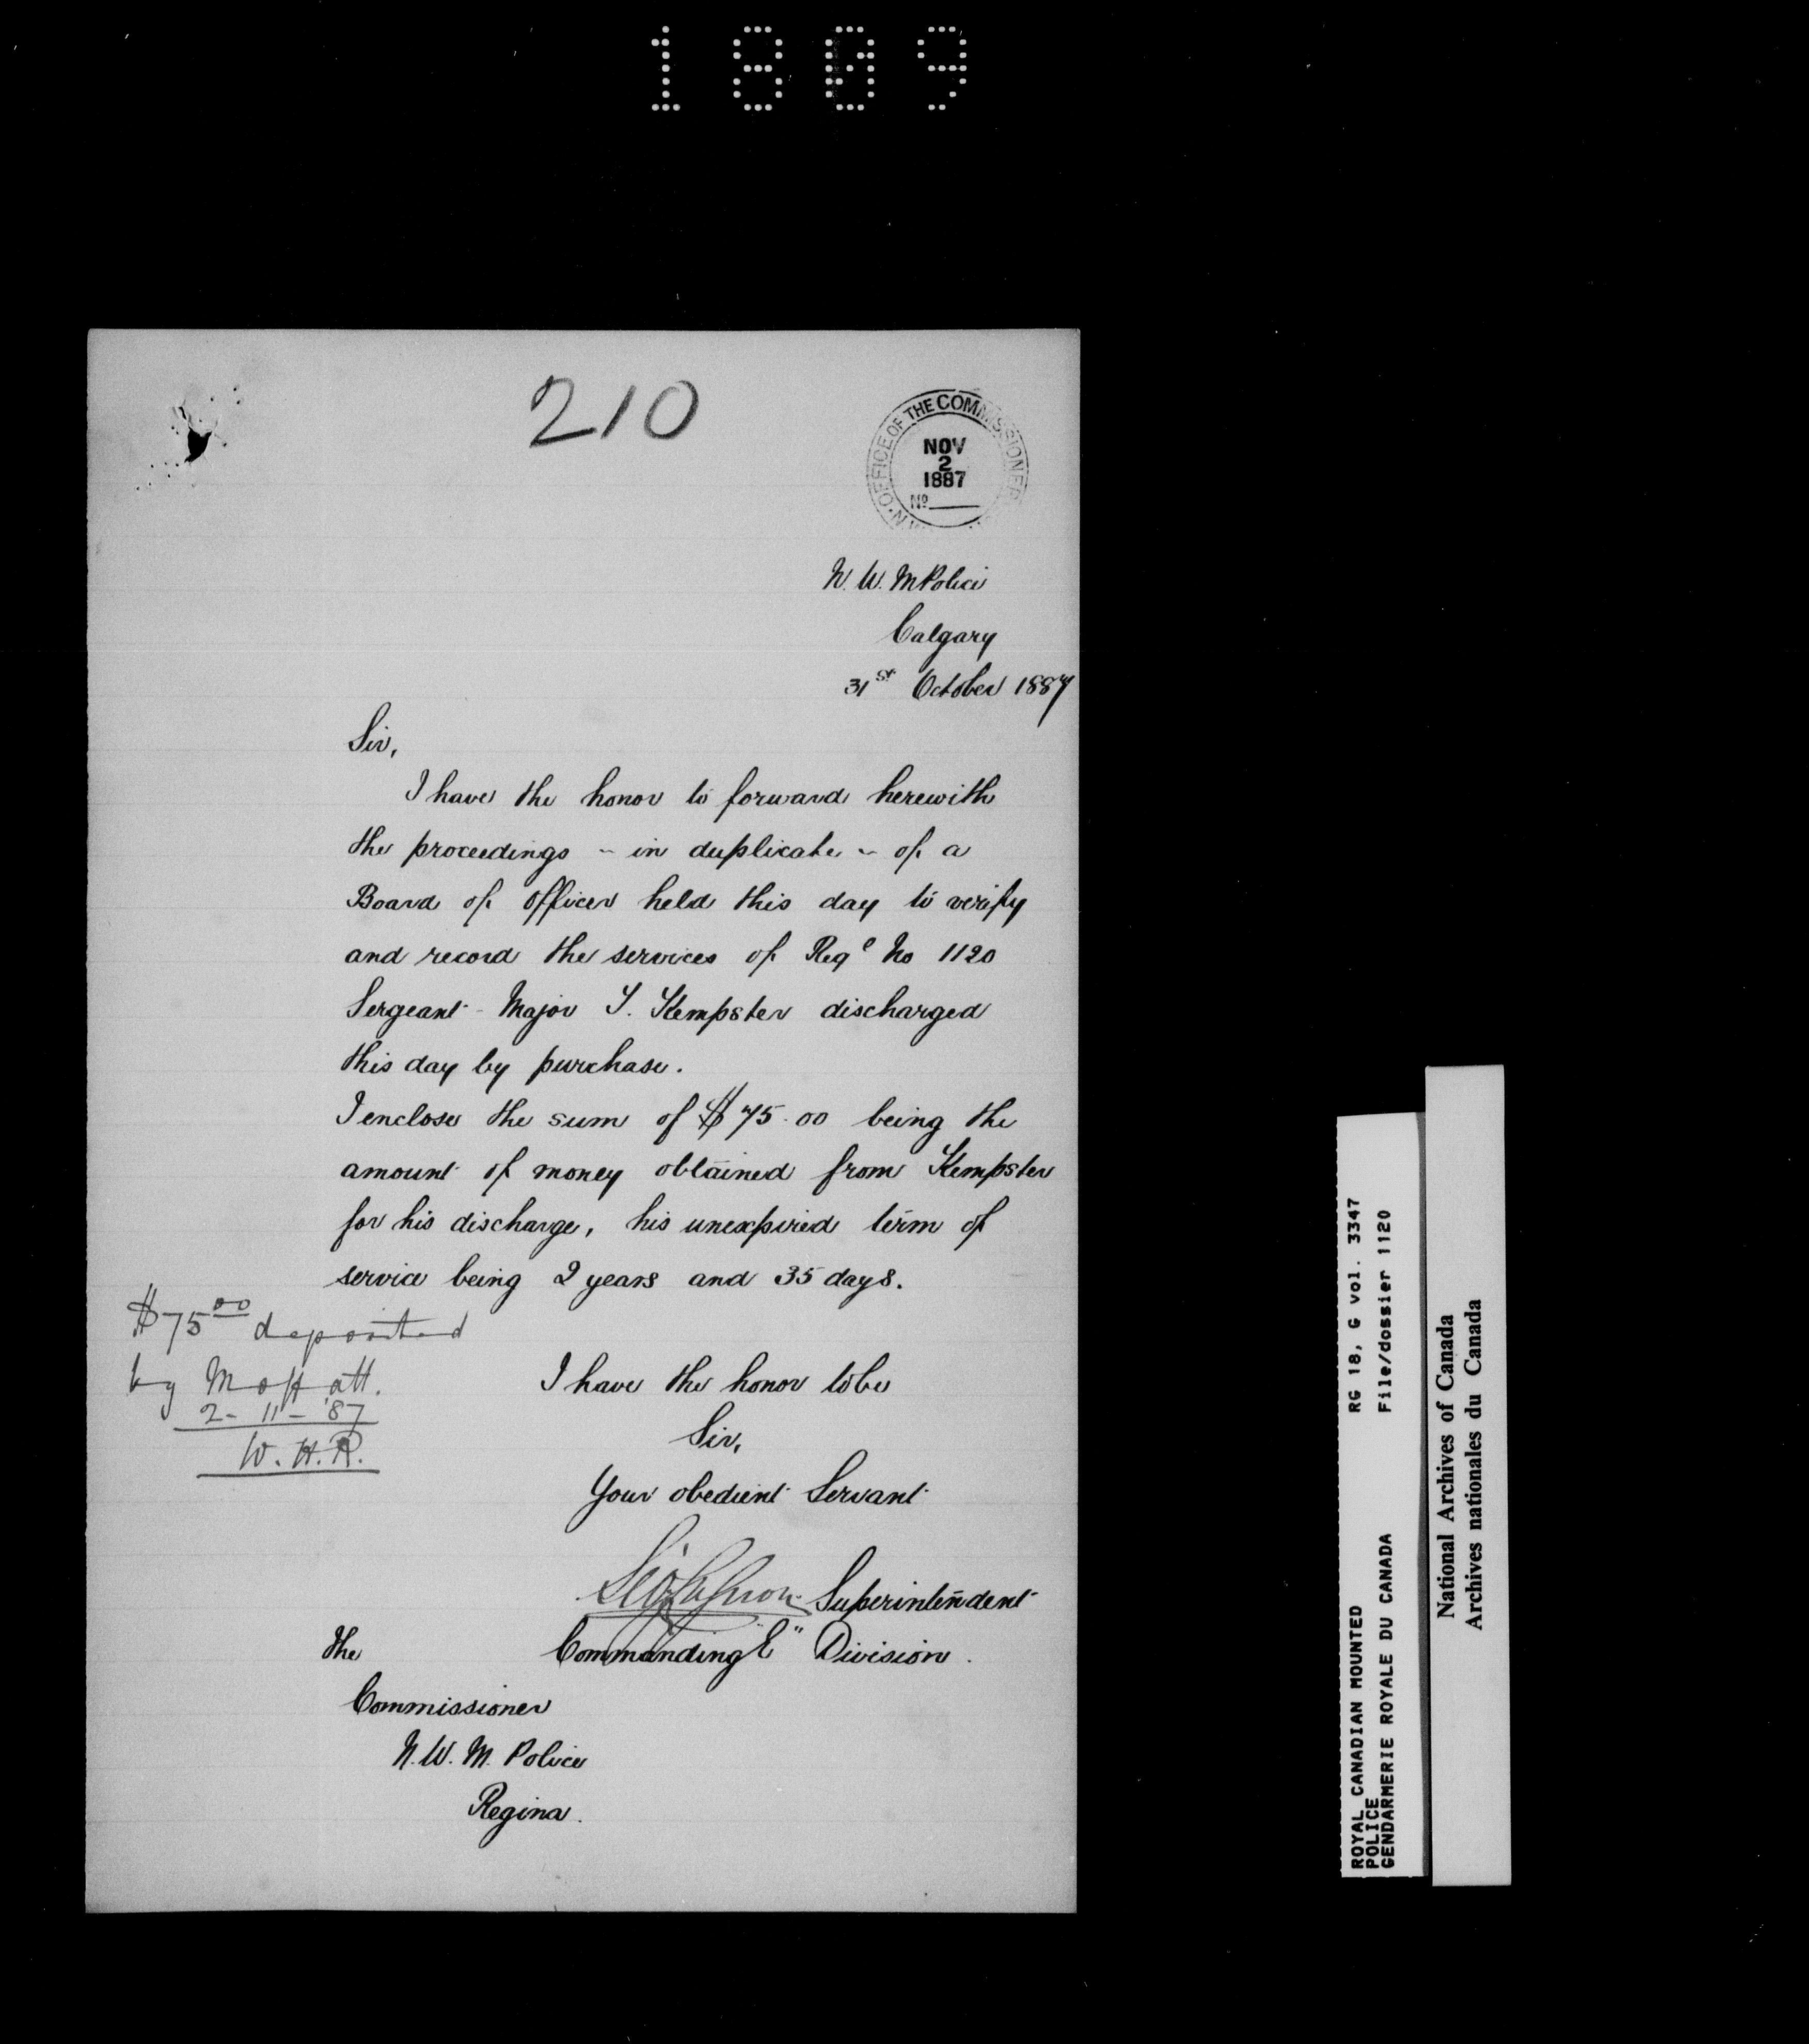 1809
210
OFFICE OF THE COMMISSIONER
NOV
2
1887
No
N. W. M Police
Calgary
31st October 1887
Sir,
I have the honor to forward herewith
the proceedings - in duplicate - of a
Board of Officers held this day to verify
and record the services of Regl No 1120
Sergeant-Major T. Kempster discharged
this day by purchase.
I enclose the sum of $75.00 being the
amount of money obtained from Kempster
for his discharge, his unexpired term of
service being 2 years and 35 days.
$75.00 deposited
by Moffatt.
2-11-'87
W.H.R.
I have the honor to be
Sir,
Your obedient Servant
Superintendent
Commanding E" Division.
The
Commissioner
N.W.M. Police
Regina.
ROYAL CANADIAN MOUNTED
POLICE
GENDARMERIE ROYALE DU CANADA
RG 18, G vol. 3347
File/dossier 1120
National Archives of Canada
Archives nationales du Canada